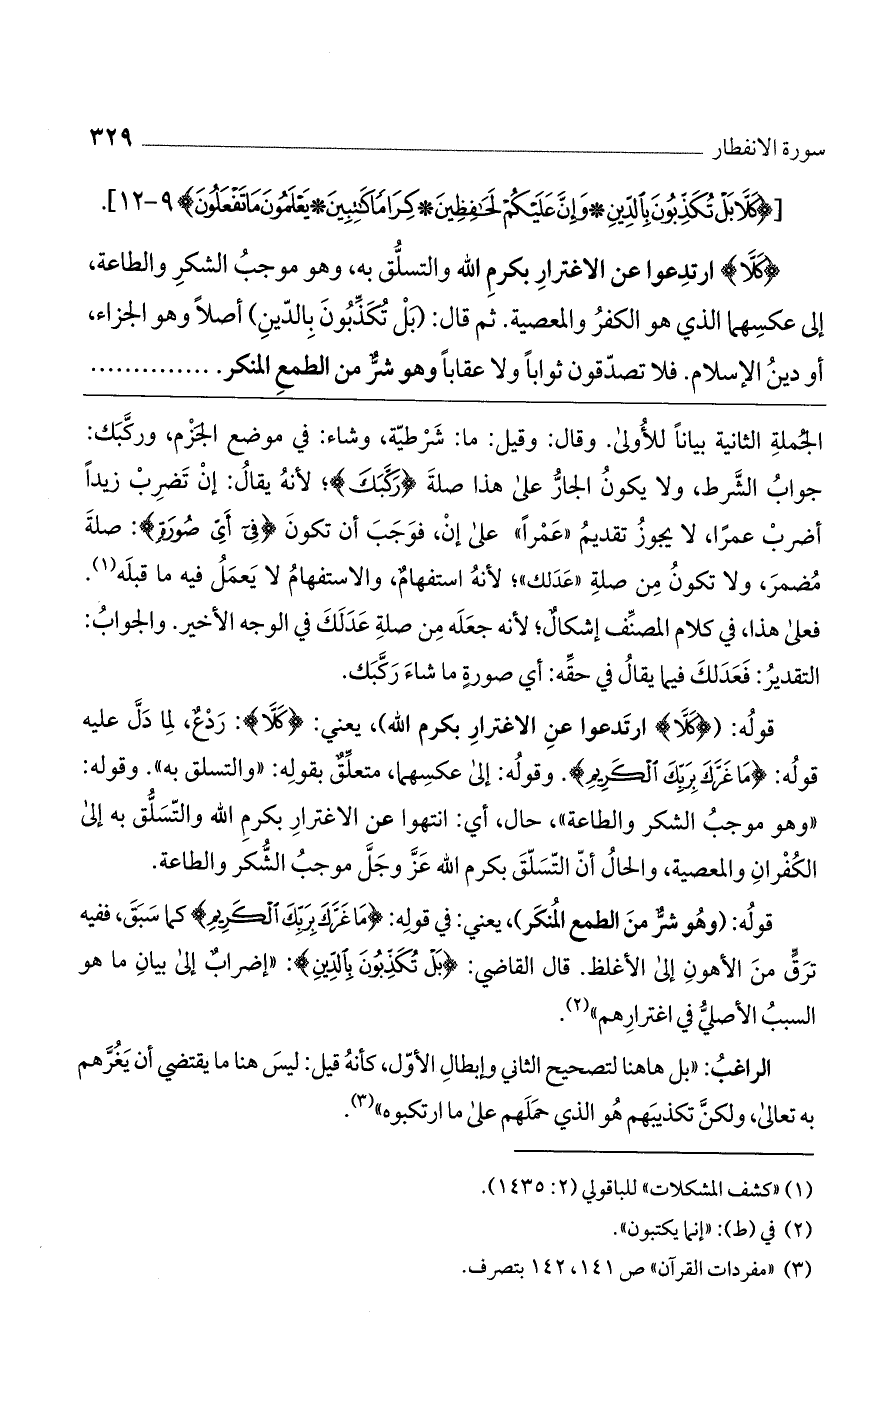 سورة الانفطار ٣٢٩
[﴿كَلَّا بَلْ تُكَذِّبُونَ بِالدِّينِ * وَإِنَّ عَلَيْكُمْ لَحَافِظِينَ * كِرَامًا كَاتِبِينَ * يَعْلَمُونَ مَا تَفْعَلُونَ﴾ ٩-١٢].
﴿كَلَّا﴾ ارتدِعوا عن الاغترارِ بكرمِ الله والتسلُّق به، وهو موجبُ الشكرِ والطاعة،
إلى عكسِهما الذي هو الكفرُ والمعصية. ثم قال: (بَلْ تُكَذِّبُونَ بِالدّينِ) أصلاً وهو الجزاء،
أو دينُ الإسلام. فلا تصدّقون ثواباً ولا عقاباً وهو شرٌّ من الطمعِ المنكر. ..............
الجُملةِ الثانية بياناً للأُولىٰ. وقال: وقيل: ما: شَرْطيّة، وشاء: في موضع الجَزْم، وركَّبَك:
جوابُ الشَّرط، ولا يكونُ الجارُّ علىٰ هذا صلةَ ﴿رَكَّبَكَ﴾؛ لأنهُ يقالُ: إنْ تَضرِبْ زيداً
أضربْ عمرًا، لا يجوزُ تقديمُ «عَمْراً» علىٰ إنْ، فوَجَبَ أن تكونَ ﴿فِي أَيِّ صُورَةٍ﴾: صلةَ
مُضمرَ، ولا تكونُ مِن صلةِ «عَدَلك»؛ لأنهُ استفهامٌ، والاستفهامُ لا يَعمَلُ فيه ما قبلَه(١).
فعلىٰ هذا، في كلام المصنِّف إشكالٌ؛ لأنه جعلَه مِن صلةِ عَدَلَكَ في الوجه الأخير. والجوابُ:
التقديرُ: فَعَدَلكَ فيما يقالُ في حقِّه: أي صورةٍ ما شاءَ رَكَّبَك.
قولُه: (﴿كَلَّا﴾ ارتَدعوا عنِ الاغترارِ بكرم الله)، يعني: ﴿كَلَّا﴾: رَدْعٌ، لِما دَلَّ عليه
قولُه: ﴿مَا غَرَّكَ بِرَبِّكَ الْكَرِيمِ﴾. وقولُه: إلىٰ عكسِهما، متعلِّقٌ بقولِه: «والتسلق به». وقوله:
«وهو موجبُ الشكر والطاعة»، حال، أي: انتهوا عن الاغترارِ بكرمِ الله والتّسَلُّق به إلىٰ
الكُفْرانِ والمعصية، والحالُ أنّ التّسَلّقَ بكرم الله عَزَّ وجَلَّ موجبُ الشُّكر والطاعة.
قولُه: (وهُو شرٌّ منَ الطمع المُنكَر)، يعني: في قولِه: ﴿مَا غَرَّكَ بِرَبِّكَ الْكَرِيمِ﴾ كما سَبَقَ، ففيه
ترَقٍّ منَ الأهونِ إلىٰ الأغلظ. قال القاضي: ﴿بَلْ تُكَذِّبُونَ بِالدِّينِ﴾: «إضرابٌ إلىٰ بيانِ ما هو
السببُ الأصليُّ في اغترارِهم»(٢).
الراغبُ: «بل هاهنا لتصحيح الثاني وإبطالِ الأوّل، كأنهُ قيل: ليسَ هنا ما يقتضي أن يَغُرَّهم
به تعالىٰ، ولكنَّ تكذيبَهم هُو الذي حمَلَهم علىٰ ما ارتكبوه»(٣).
(١) «كشف المشكلات» للباقولي (٢: ١٤٣٥).
(٢) في (ط): «إنما يكتبون».
(٣) «مفردات القرآن» ص ١٤١، ١٤٢ بتصرف.